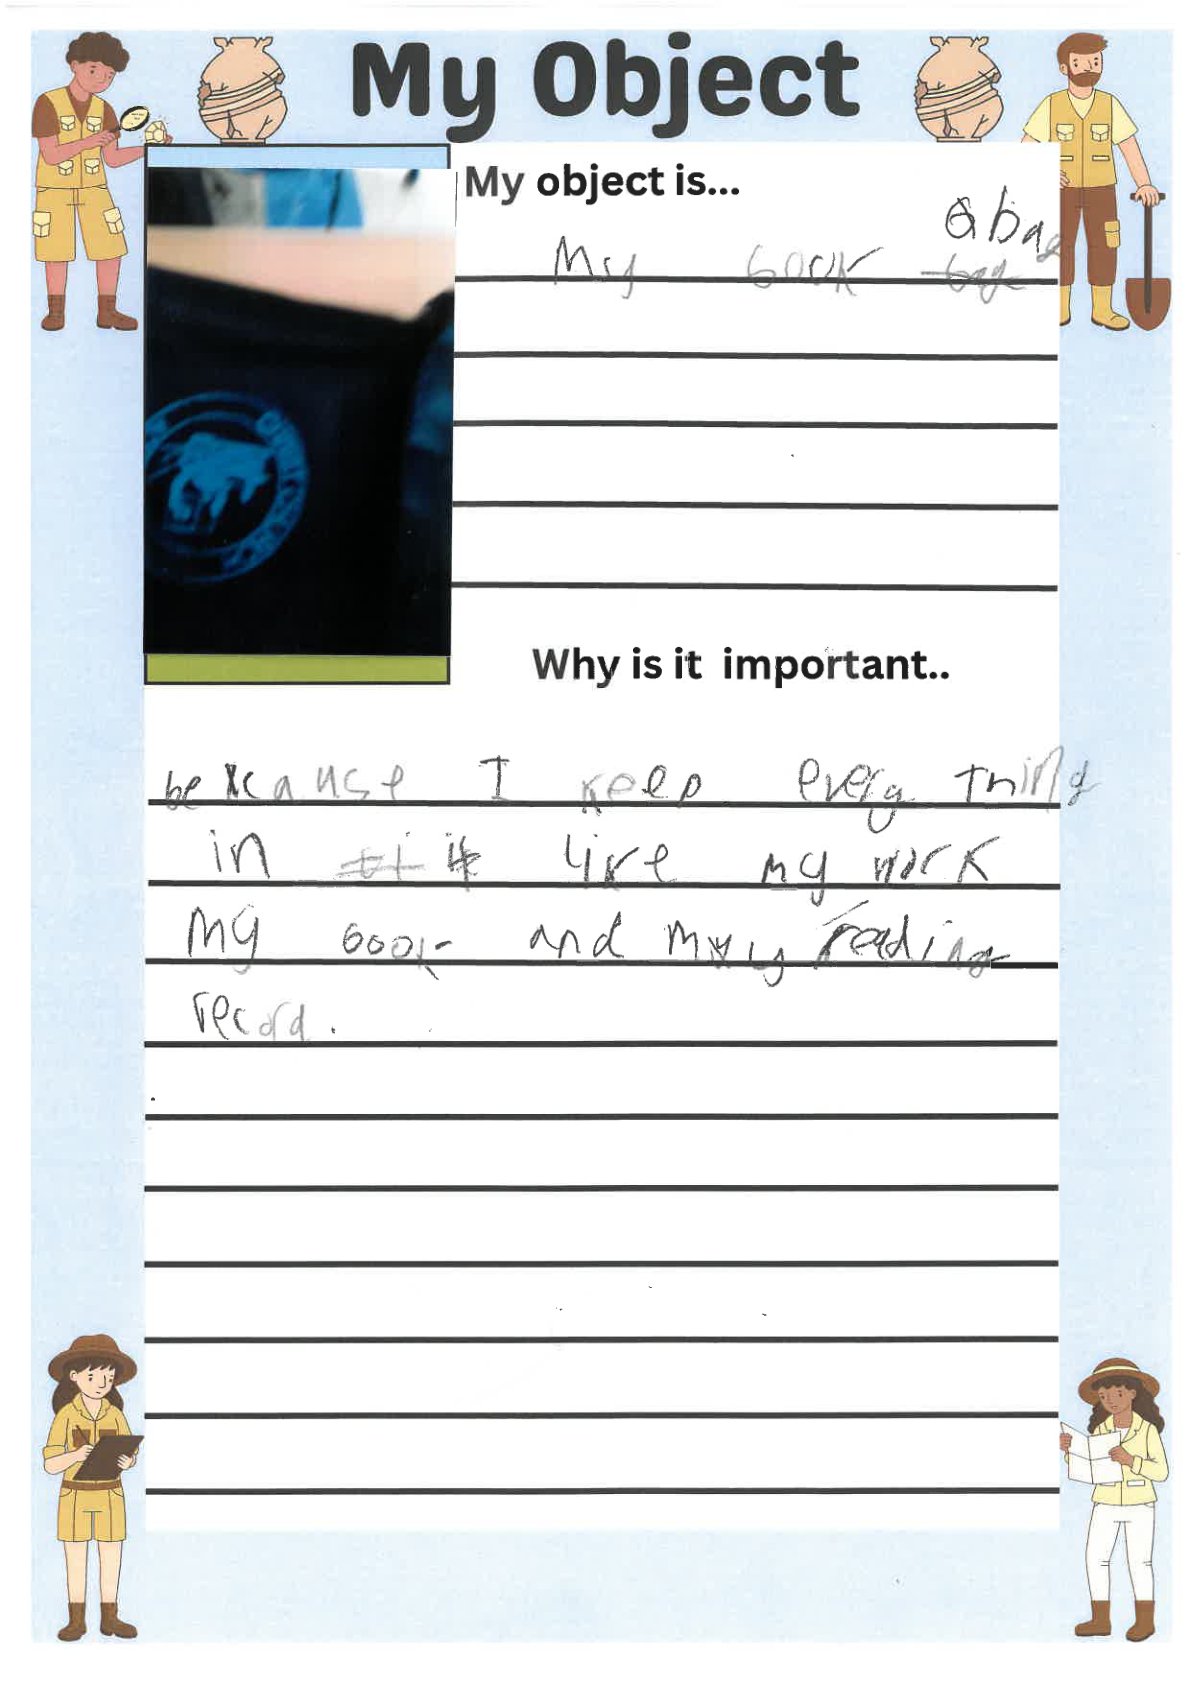 My Object
My object is...
a bag
My book bag
Why is it important..
because I keep every thing
in it like my work
my book and my reading
record.